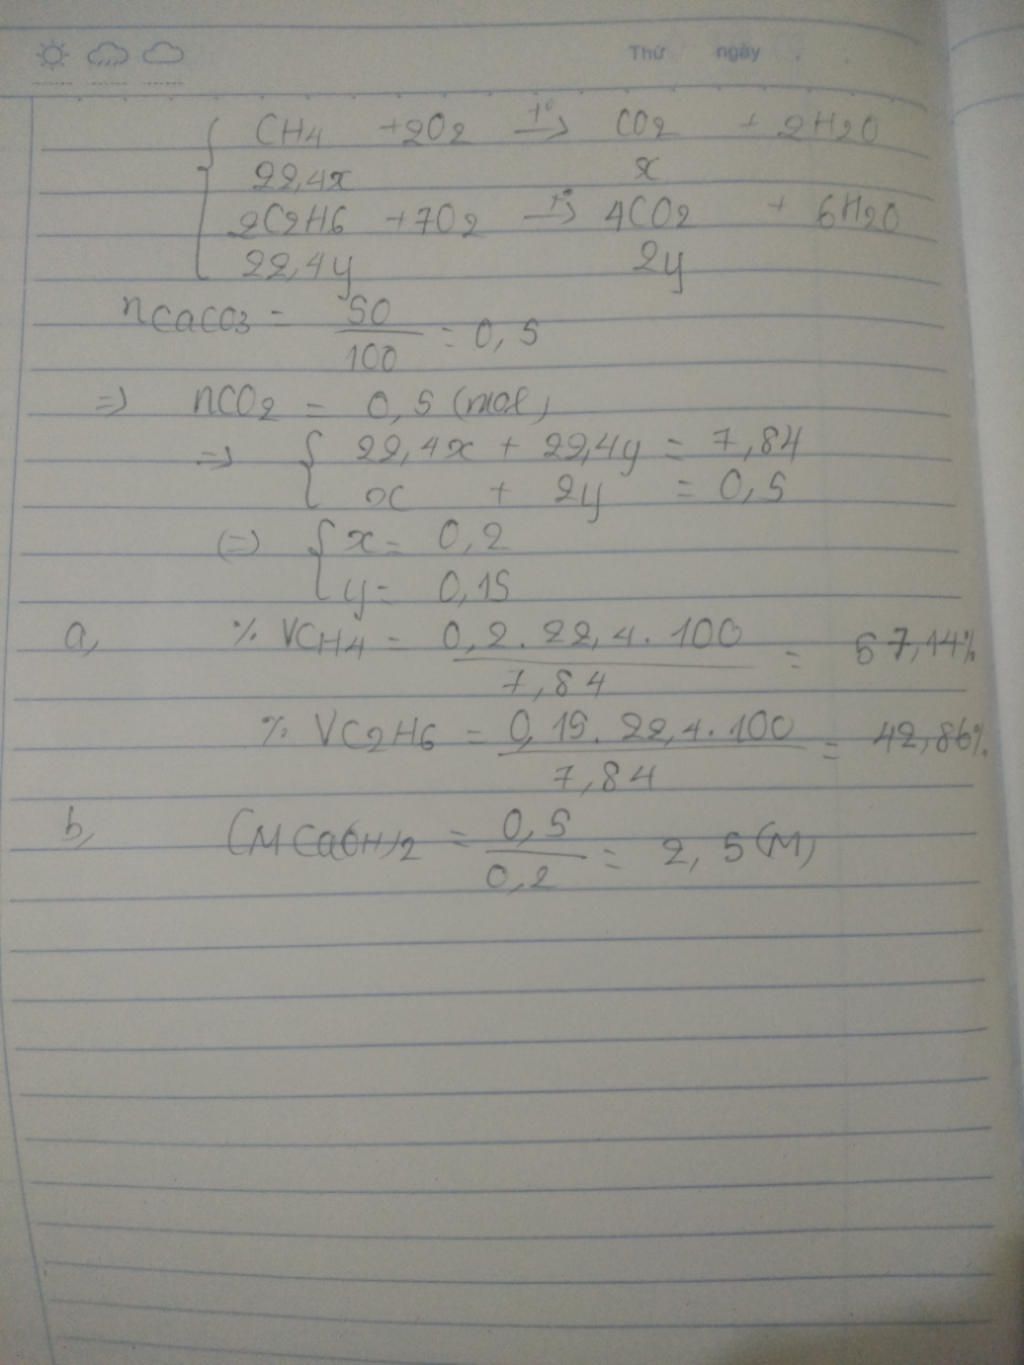 Thứ ngày
CH4 +2O2 t°→ CO2 + 2H2O
22,4x x
2C2H6 +7O2 t°→ 4CO2 + 6H2O
22,4y 2y
nCaCO3 = 50/100 = 0,5
=> nCO2 = 0,5 (mol)
=> { 22,4x + 22,4y = 7,84
x + 2y = 0,5
(=) { x = 0,2
y = 0,15
a, % VCH4 = 0,2.22,4.100/7,84 = 57,14%
% VC2H6 = 0,15.22,4.100/7,84 = 42,86%
b, CM Ca(OH)2 = 0,5/0,2 = 2,5 (M)